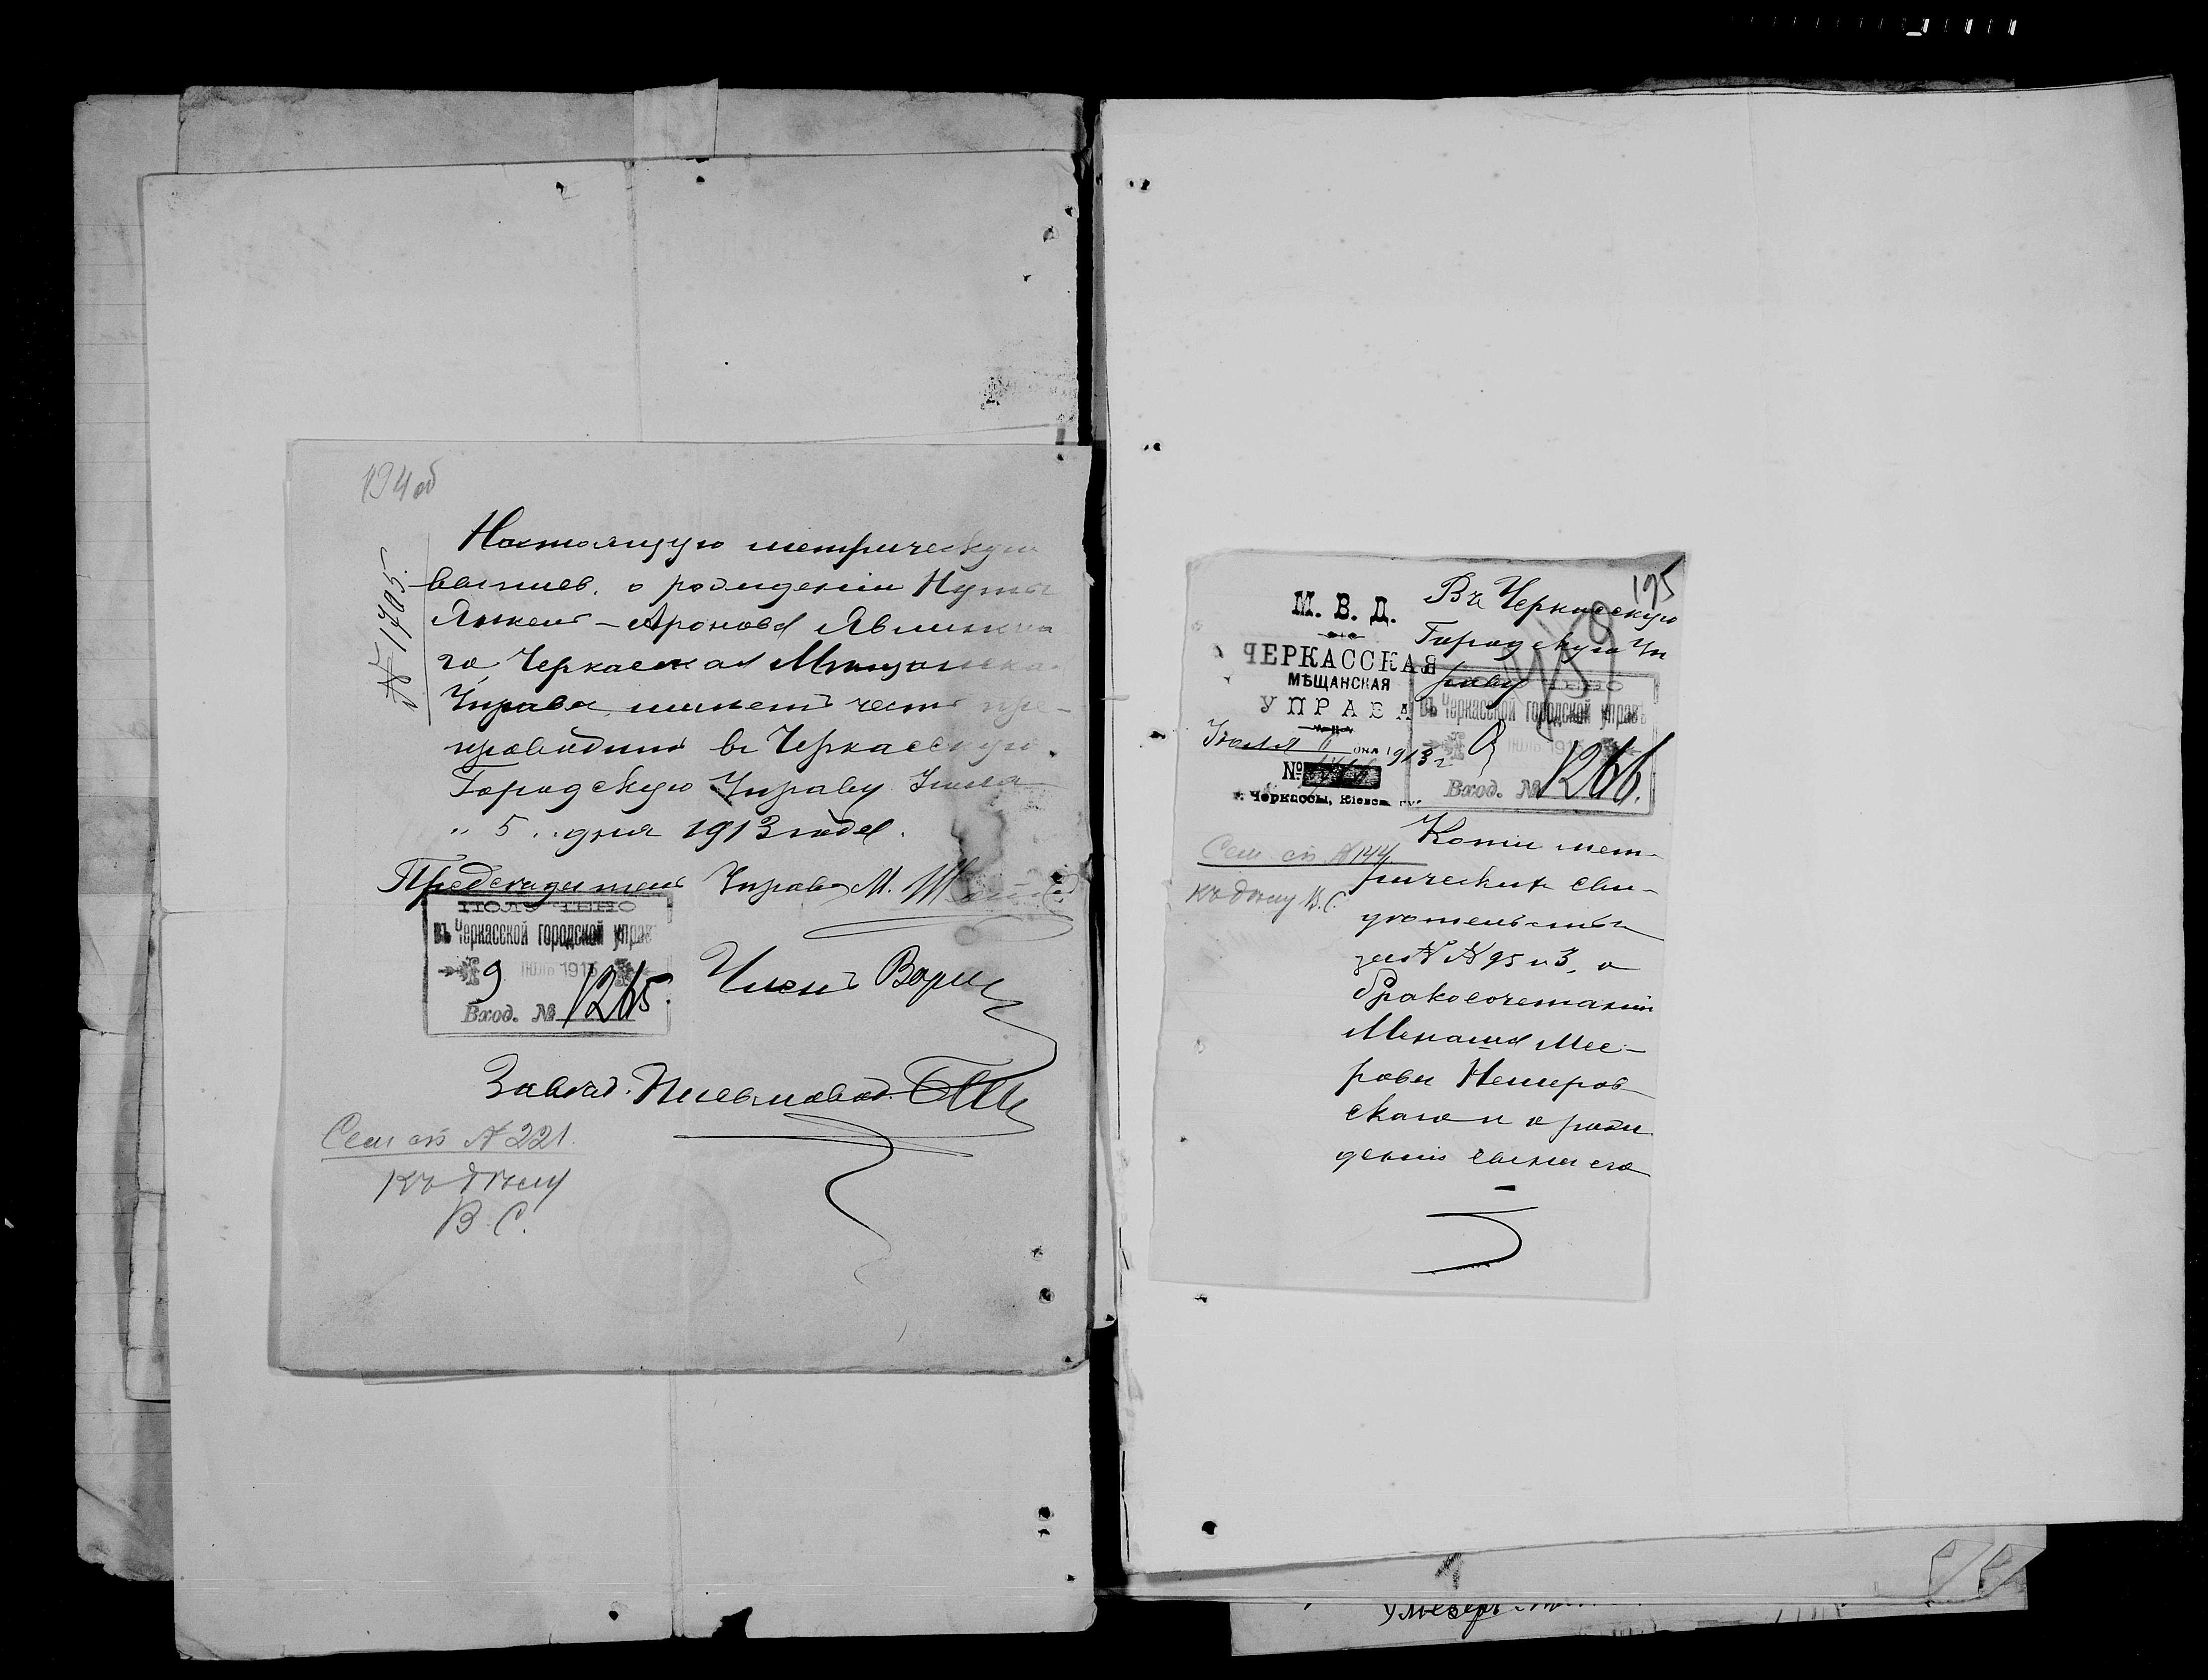 194 об
№ 1705.
Настоящую метрическую
выпись о рожденіи Нуты
Янкель-Аронова Явлинска
го, Черкасская Мѣщанская
Управа имѣетъ честь пре-
проводить въ Черкасскую
Городскую Управу Іюля
" 5 " дня 1913 года.
Предсѣдатель Управы М.
ПОЛУЧЕНО
въ Черкасской городской управѣ
9 ІЮЛЬ 1913
Вход. № 1265.
Членъ
Завѣд. Письмовод.
Сем сп № 221.
Къ дѣлу
В. С.
195
Въ Черкасскую
Городскую Уп
раву
М. В. Д.
ЧЕРКАССКАЯ
МѢЩАНСКАЯ
УПРАВА
Іюля дня 1913 г.
№
г. Черкассы, Кіевск. губ.
ПОЛУЧЕНО
въ Черкасской городской управѣ
9 ІЮЛЬ 1913
Вход. № 1266.
Сем сп № 144
Къ дѣлу В. С.
Копіи мет-
рическихъ сви-
дѣтельствъ
за № № 95 и 3, о
бракосочетаніи
Менаша Мее-
рова Немиров
скаго и о рож
деніи сына его